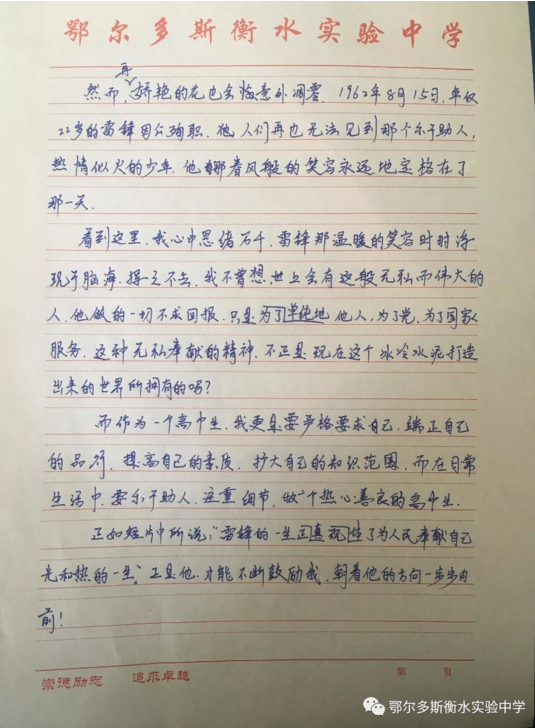 鄂尔多斯衡水实验中学
然而,再娇艳的花也会临意外凋零。1962年8月15日,年仅
22岁的雷锋因公殉职。他,人们再也无法见到那个乐于助人,
热情似火的少年。他那春风般的笑容永远地定格在了
那一天。
看到这里,我心中思绪万千,雷锋那温暖的笑容时时浮
现于脑海,挥之不去。我不曾想,世上会有这般无私而伟大的
人,他做的一切不求回报,只是为了单纯地他人,为了党,为了国家
服务。这种无私奉献的精神,不正是现在这个冰冷水泥打造
出来的世界所拥有的吗?
而作为一个高中生,我更是要严格要求自己,端正自己
的品行,提高自己的素质,扩大自己的知识范围,而在日常
生活中,要乐于助人,注重细节,做个热心善良的高中生。
正如短片中所说:“雷锋的一生 了为人民奉献自己
光和热的一生”。正是他,才能不断鼓励我,朝着他的方向一步步向
前!
崇德励志 追求卓越
第 页
鄂尔多斯衡水实验中学